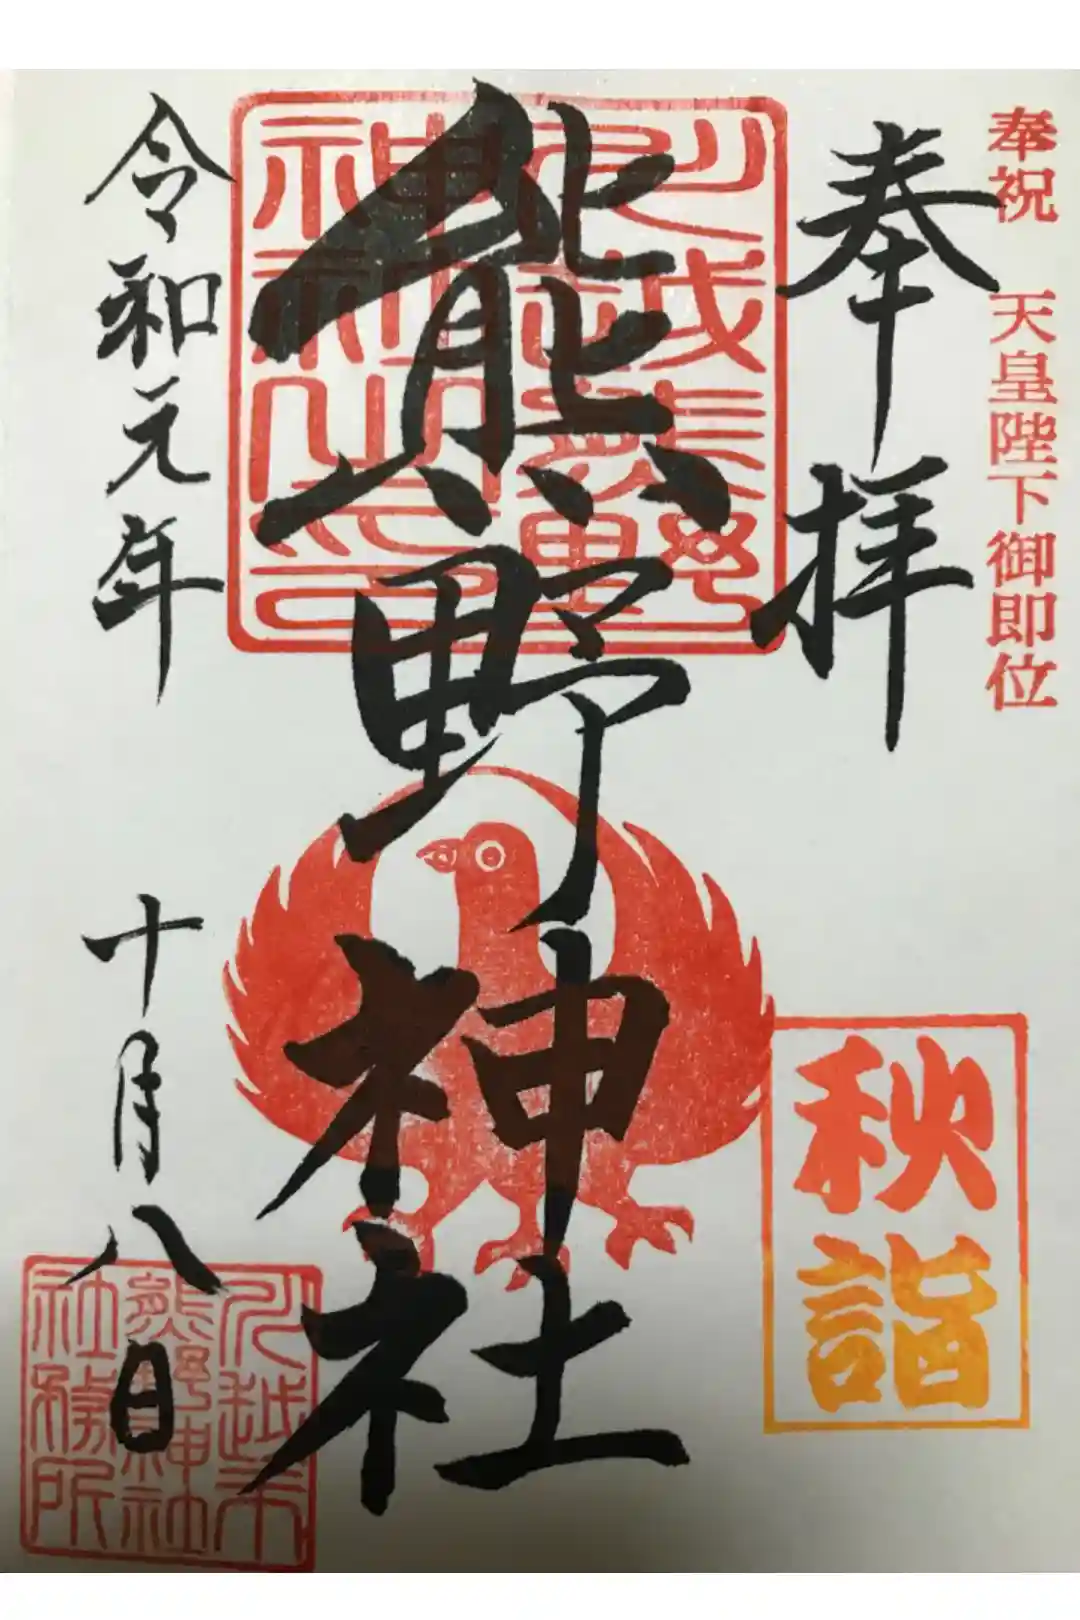 奉祝 天皇陛下御即位
奉拝
熊野神社
令和元年 十月八日
秋詣
川越熊野
神社之印
川越市
熊野神社
社務所